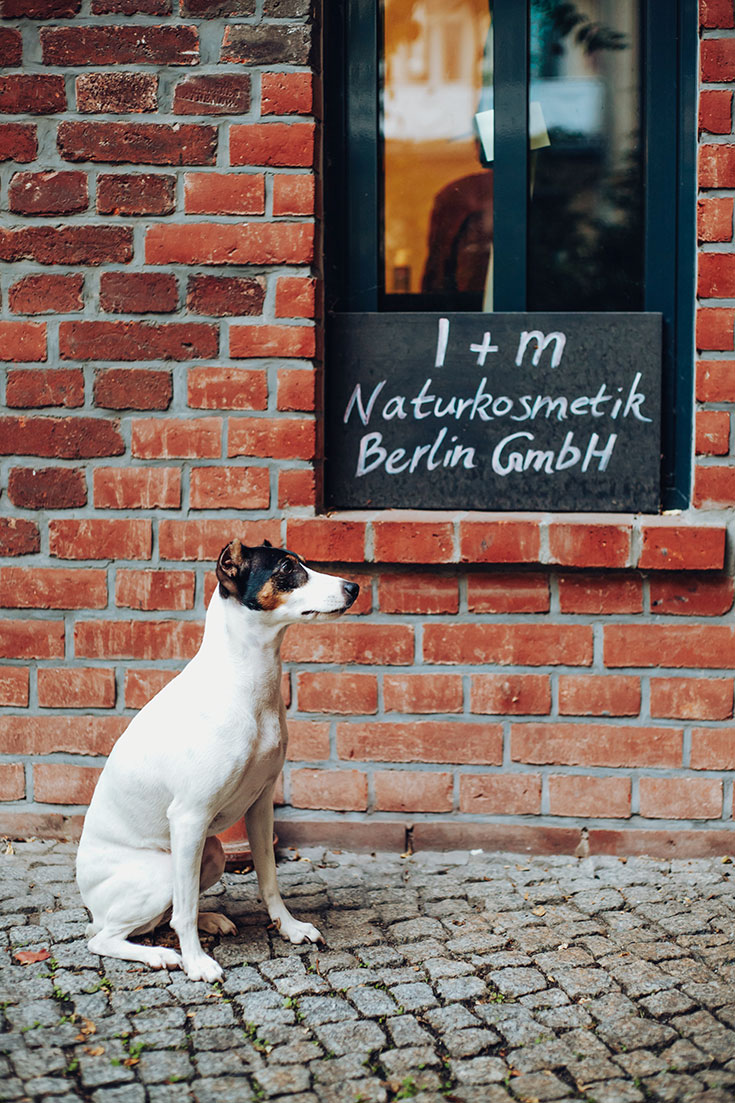 I + m
Naturkosmetik
Berlin GmbH